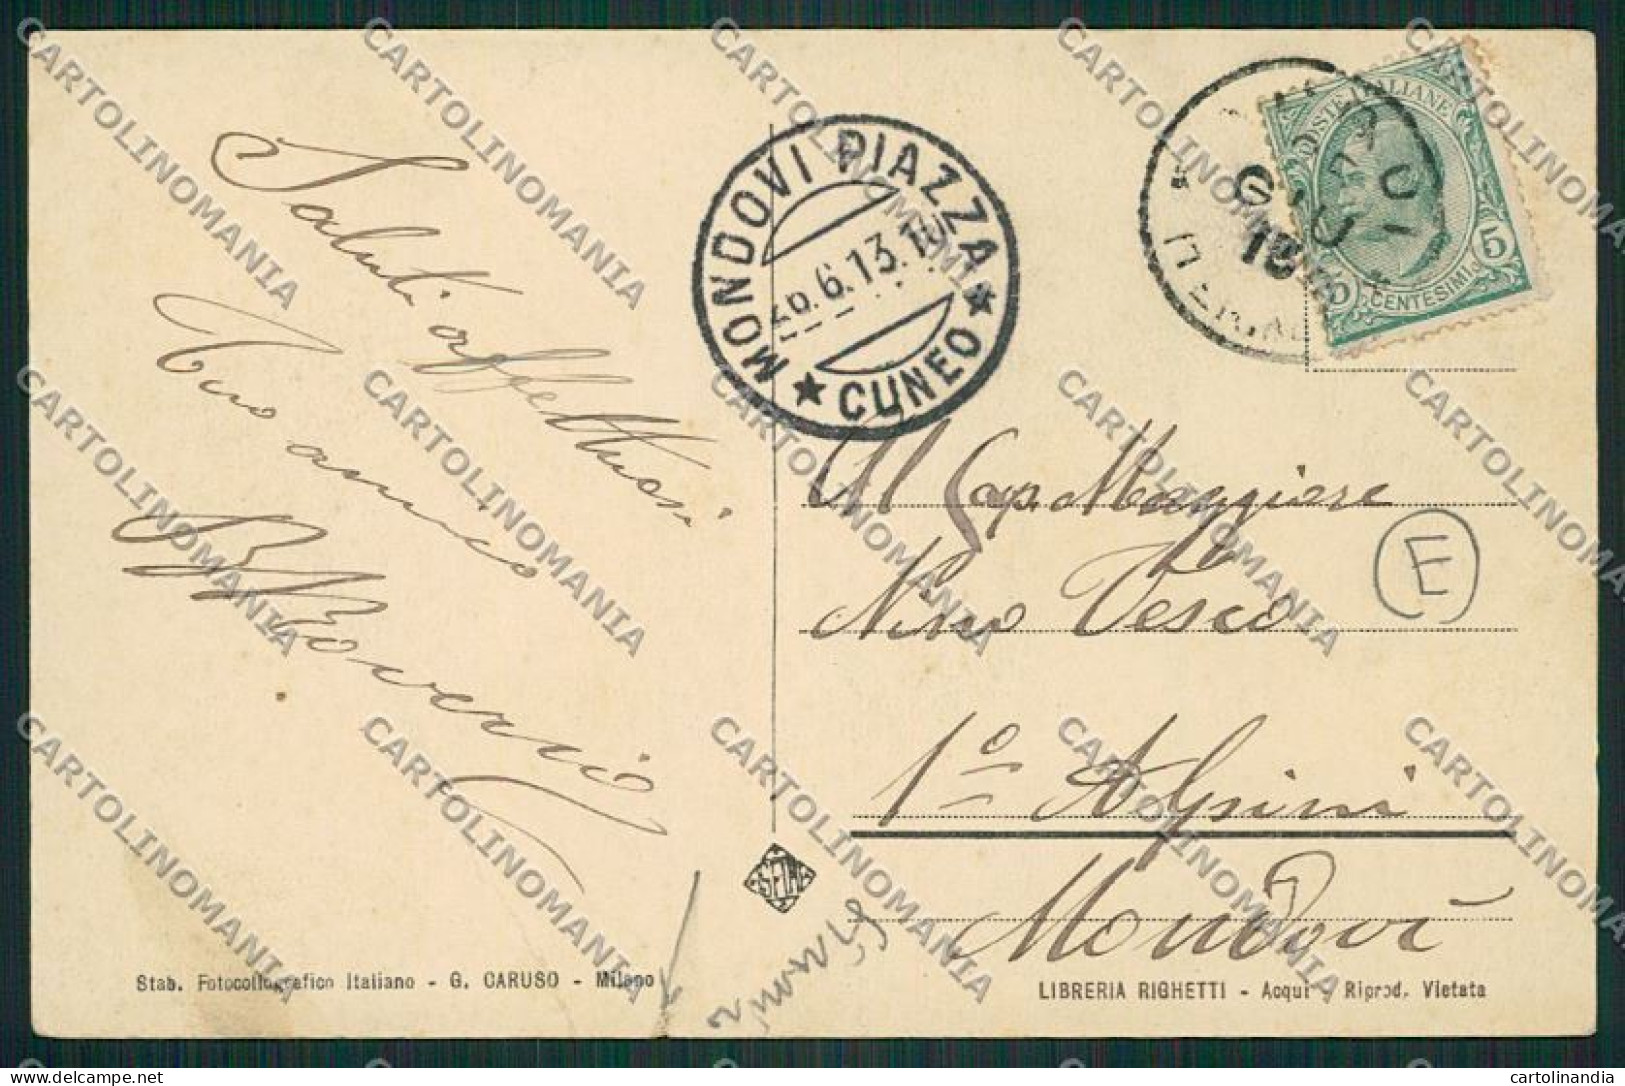 Saluti affettuosi
Tuo amico
MONDOVI PIAZZA
26.6.13.10
★ CUNEO ★
POSTE ITALIANE
GIU
13
5 CENTESIMI 5
Al Cap. Maggiore
Nino Vesco
E
1º Alpini
Mondovì
Stab. Fotocollografico Italiano - G. CARUSO - Milano
LIBRERIA RIGHETTI - Acqui - Riprod. Vietata
CARTOLINOMANIA
delcampe.net
cartolinandia